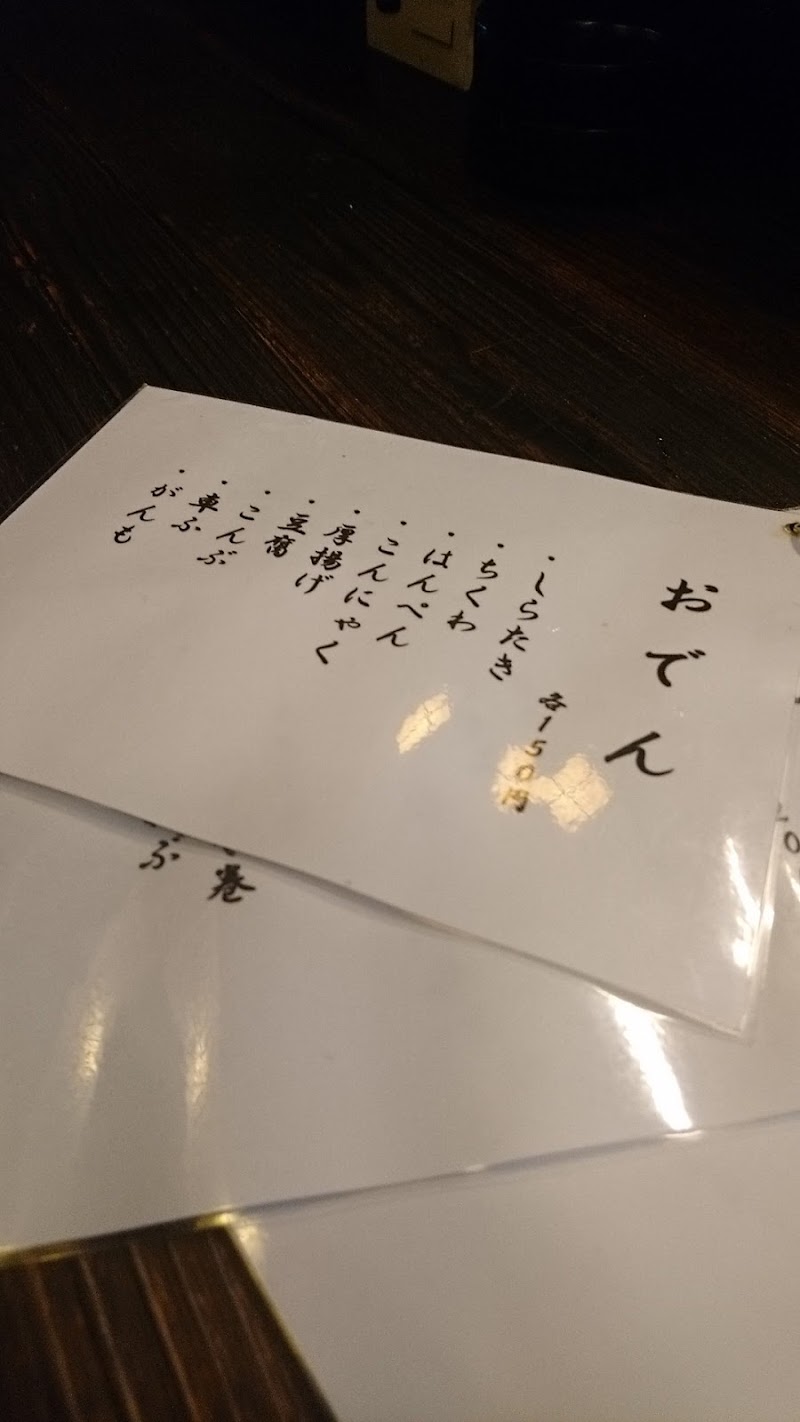 おでん
各150円
・しらたき
・ちくわ
・はんぺん
・こんにゃく
・厚揚げ
・豆腐
・こんぶ
・車ふ
・がんも
巻
ぶ